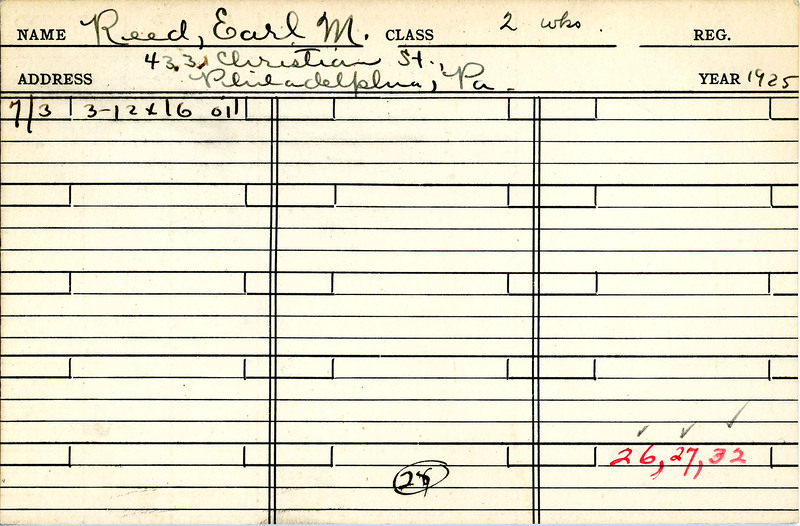 NAME Reed, Earl M. CLASS 2 wks. REG.
433 Christian St.,
ADDRESS Philadelphia, Pa. YEAR 1925
7/3 3-12x16 oil
26, 27, 32